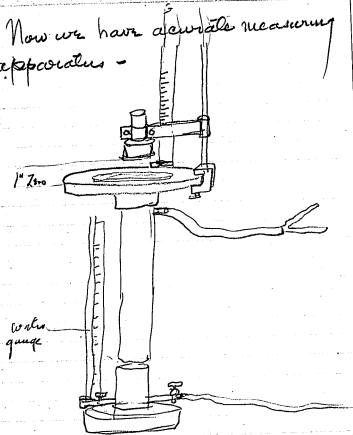 Now we have acurate measuring
apparatus -
1st Zero
gauge